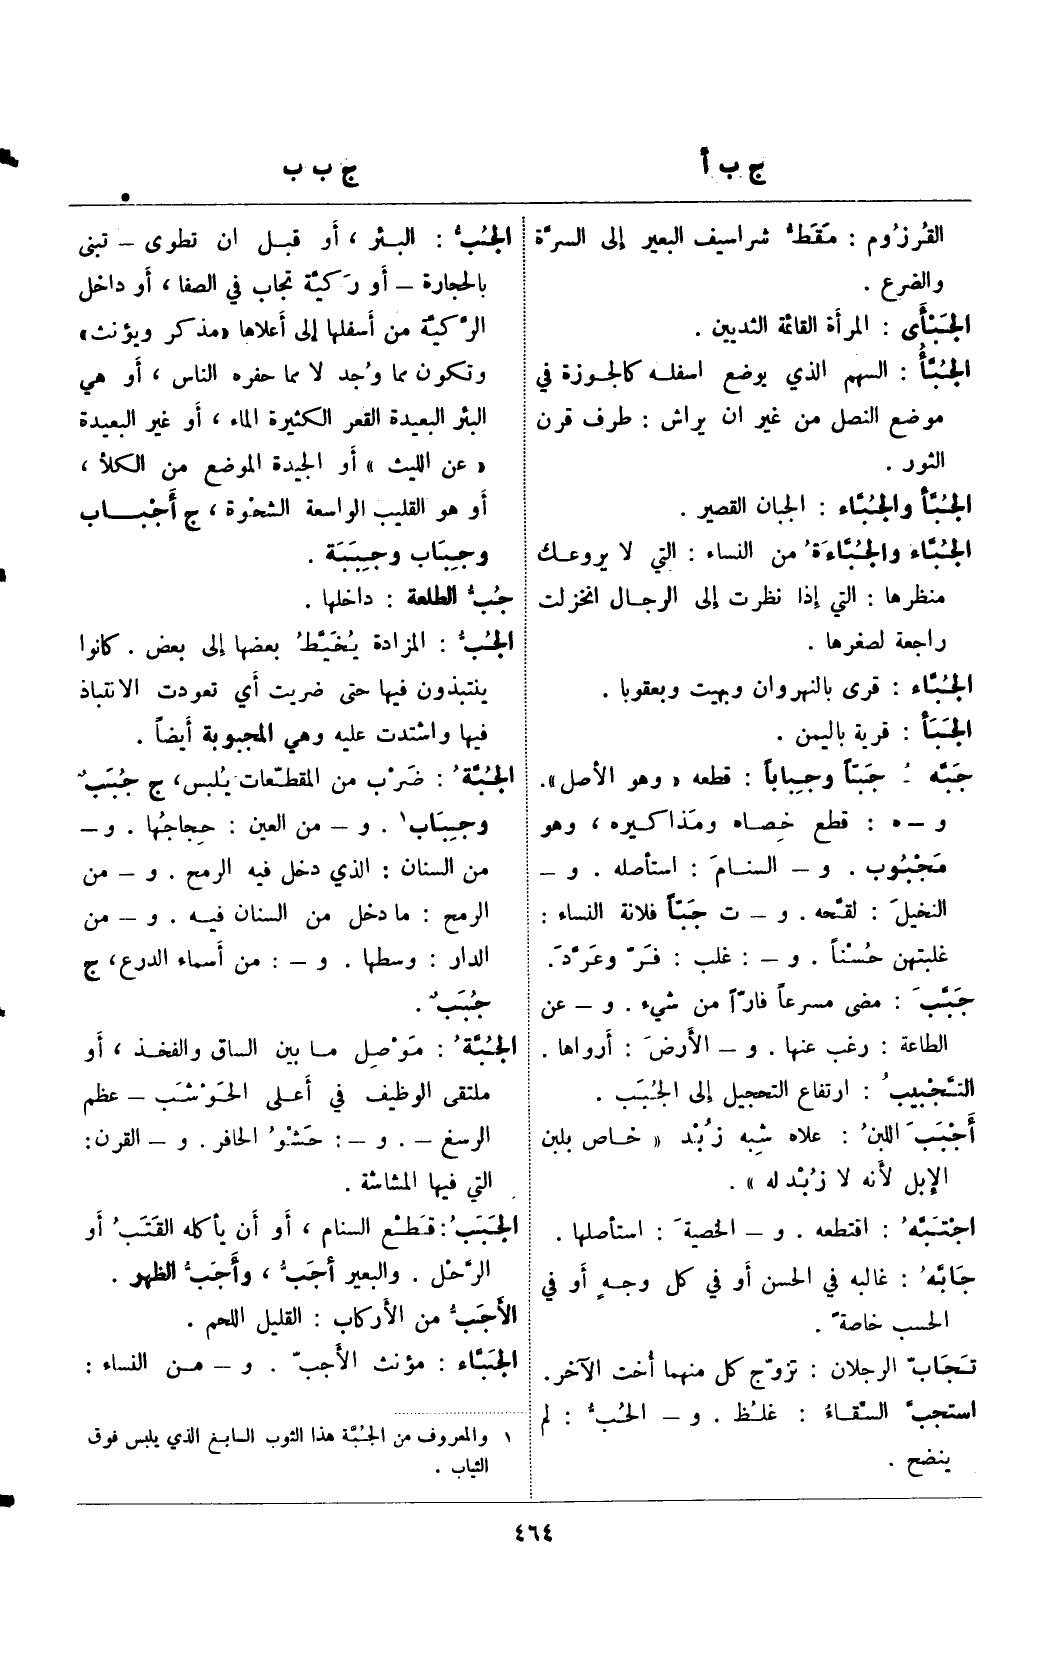 ج ب أ
ج ب ب
القُرزُوم : مَقَطُّ شراسيف البعير إلى السرَّة
والضرع .
الجَبْأَى : المرأة القائمة الثديين .
الجُبَّأُ : السهم الذي يوضع اسفله كالجوزة في
موضع النصل من غير ان يراش : طرف قرن
الثور .
الجُبَّأ والجُبَّاء : الجبان القصير .
الجُبَّاء والجُبَّاءَةُ من النساء : التي لا يروعك
منظرها : التي إذا نظرت إلى الرجال انخزلت
راجعة لصغرها .
الجُبَّاء : قرى بالنهروان وبهيت وبعقوبا .
الجَبَأ : قرية باليمن .
جَبَّه ُ : جَبّاً وجِباباً : قطعه « وهو الأصل».
و – ه : قطع خِصاه ومَذاكيره ، وهو
مَجْبُوب . و – السنامَ : استأصله . و –
النخيلَ : لقَّحه . و – ت جَبّاً فلانة النساء :
غلبتهن حُسْناً . و – : غلب : فَرّ وعَرَّدَ.
جَبَّبَ : مضى مسرعاً فارّاً من شيء . و – عن
الطاعة : رغب عنها . و – الأرضَ : أرواها .
التَّجْبيبُ : ارتفاع التحجيل إلى الجُبَب .
أَجْبَبَ اللبنُ : علاه شِبه زُبْد « خاص بلبن
الإبل لأنه لا زُبْد له » .
اجْتَبَّهُ : اقتطعه . و – الخصيةَ : استأصلها .
جَابَّهُ : غالبه في الحسن أو في كل وجهٍ أو في
الحسب خاصةً .
تَجَابّ الرجلان : تزوّج كل منهما أخت الآخر.
استجبَّ السِّقاءُ : غلُظ . و – الحُبُّ : لم
ينضح .
الجُبُّ : البئر ، أو قبل ان تطوى – تبنى
بالحجارة – أو رَكيَّة تجاب في الصفا ، أو داخل
الرَّكيَّة من أسفلها إلى أعلاها «مذكر ويؤنث»
وتكون مما وُجد لا مما حفره الناس ، أو هي
البئر البعيدة القعر الكثيرة الماء ، أو غير البعيدة
« عن الليث » أو الجيدة الموضع من الكلأ ،
أو هو القليب الواسعة الشحْوة ، ج أَجْبـاب
وجِبَاب وجِبَبَة .
جُبُّ الطلعة : داخلها .
الجُبُّ : المزادة يُخَيَّطُ بعضها إلى بعض . كانوا
ينتبذون فيها حتى ضريت أي تعودت الانتباذ
فيها واشتدت عليه وهي المجبوبة أيضاً .
الجُبَّةُ : ضَرْب من المقطّعات يُلبس، ج جُبَبٌ
وجِبَاب١ . و – من العين : حِجاجُها . و –
من السنان : الذي دخل فيه الرمح . و – من
الرمح : ما دخل من السنان فيه . و – من
الدار : وسطها . و – : من أسماء الدرع، ج
جُبَبٌ .
الجُبَّةُ : مَوْصِل ما بين الساق والفخذ ، أو
ملتقى الوظيف في أعلى الحَوْشَب – عظم
الرسغ – . و – : حَشْوُ الحافر . و – القرن:
التي فيها المشاشة .
الجَبَبُ: قَطْع السنام ، أو أن يأكله القَتَبُ أو
الرَّحْل . والبعير أجَبُّ ، وأَجَبُّ الظهر .
الأَجَبُّ من الأَركاب : القليل اللحم .
الجَبَّاء : مؤنث الأجبّ . و – من النساء :
١ والمعروف من الجُبَّة هذا الثوب السابغ الذي يلبس فوق
الثياب .
٤٦٤